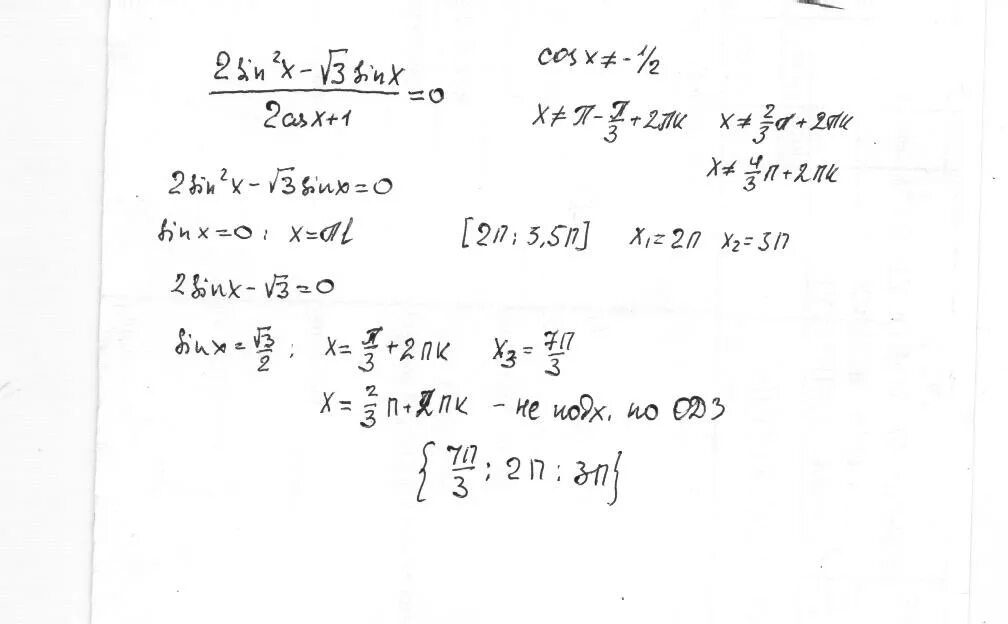 (2sin²x − √3 sinx)/(2cosx+1) = 0
cosx ≠ -1/2
x ≠ π − π/3 + 2πk   x ≠ 2/3 π + 2πk
x ≠ 4/3 π + 2πk
2sin²x − √3 sinx = 0
sinx = 0 ; x = πl   [2π ; 3,5π]   x₁ = 2π   x₂ = 3π
2sinx − √3 = 0
sinx = √3/2 ; x = π/3 + 2πk   x₃ = 7π/3
x = 2/3 π + 2πk − не подх. по ОДЗ
{7π/3 ; 2π ; 3π}